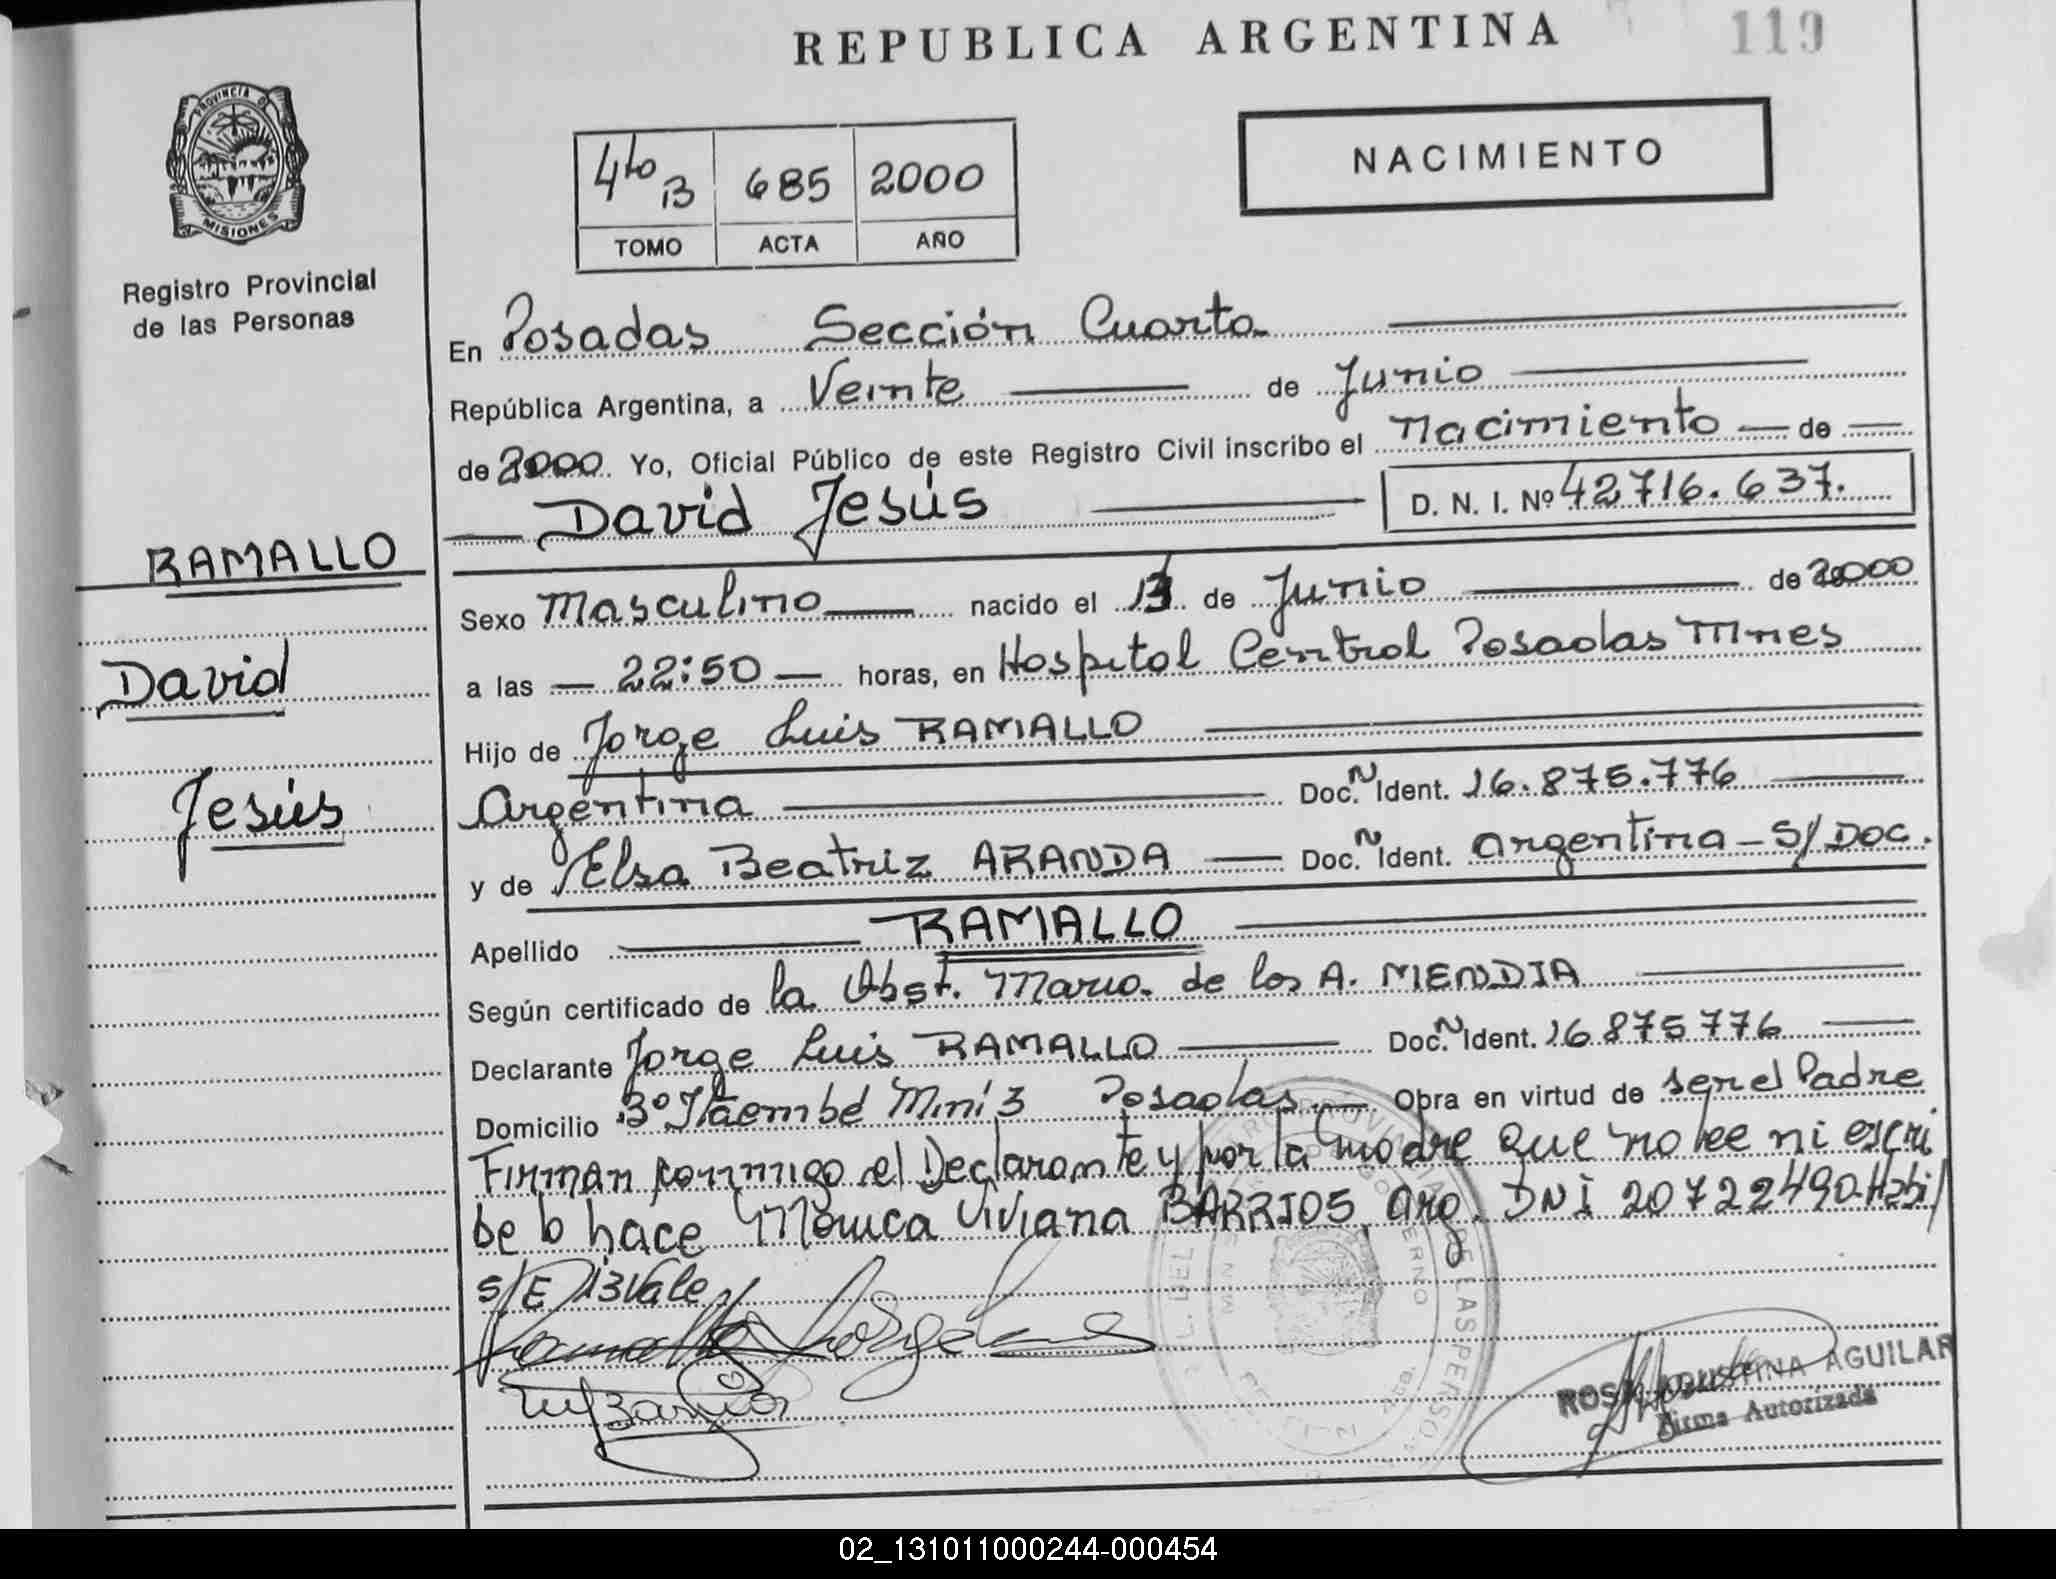 REPUBLICA ARGENTINA
119
PROVINCIA D
MISIONES
Registro Provincial
de las Personas
4to B 685 2000
TOMO ACTA AÑO
NACIMIENTO
En Posadas Sección Cuarta
República Argentina, a Veinte de Junio
de 2000 Yo, Oficial Público de este Registro Civil inscribo el Nacimiento de
David Jesús D. N. I. Nº 42716.637.
RAMALLO
David
Jesús
Sexo Masculino nacido el 13 de Junio de 2000
a las 22:50 horas, en Hospital Central Posadas Mnes
Hijo de Jorge Luis RAMALLO
Argentina Doc. N Ident. 16.875.776
y de Elsa Beatriz ARANDA Doc. N Ident. Argentina - S/DOC.
Apellido RAMALLO
Según certificado de la Obst. Maria de los A. MENDIA
Declarante Jorge Luis RAMALLO Doc. N Ident. 16.875776
Domicilio Bº Itaembé Miní 3 Posadas. Obra en virtud de ser el Padre
Firman conmigo el Declarante y por la madre que no lee ni escri
be lo hace Mónica Viviana BARRIOS Arg. DNI 20722490. Habil
S/E 13 Vale
ROSA AGUSTINA AGUILAR
Firma Autorizada
02_131011000244-000454